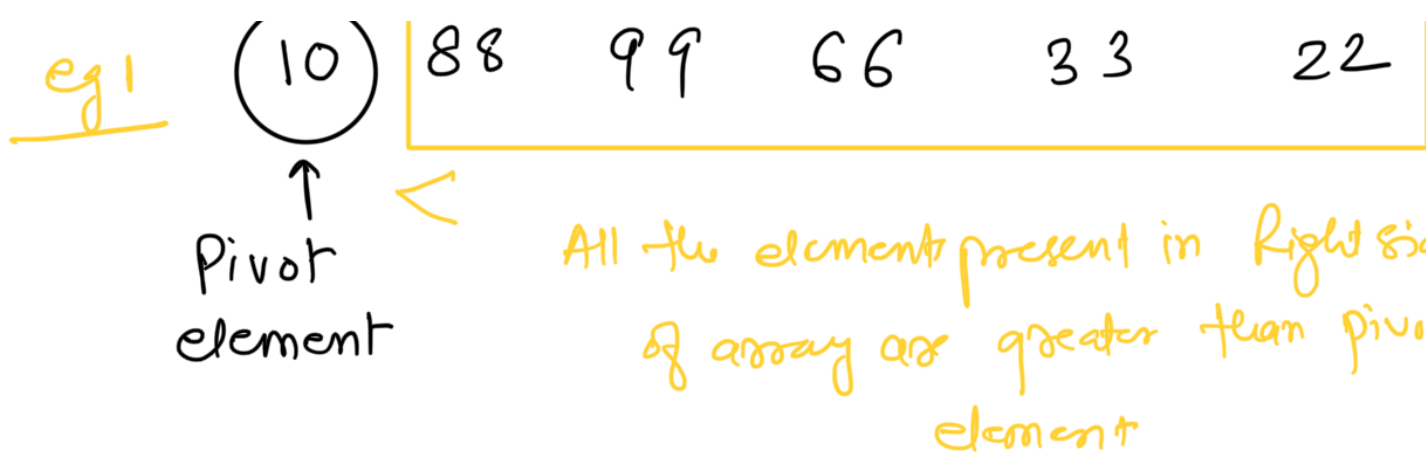 eg 1 10 88 99 66 33 22
Pivot
element
<
All the elements present in Right
of array are greater than
element